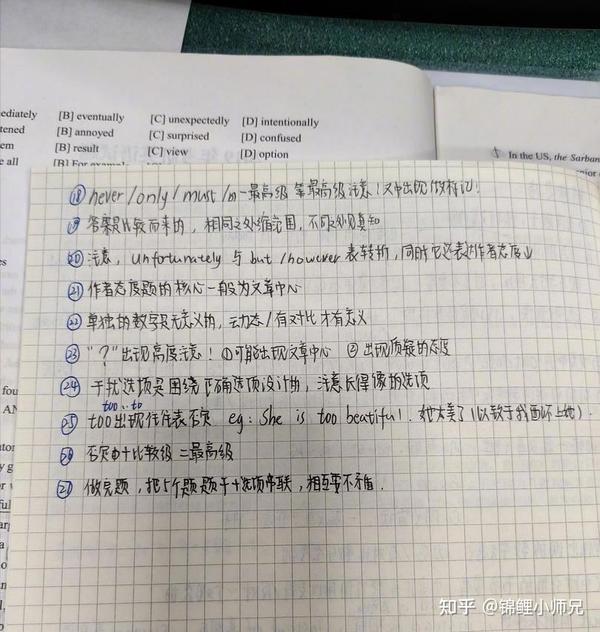 ediately [B] eventually [C] unexpectedly [D] intentionally
tened [B] annoyed [C] surprised [D] confused
em [B] result [C] view [D] option
e all [B] For example
5 In the US, the Sarban
⑱ never/only/must/the 最高级 等最高级注意！文中出现做标记！
⑲ 答案是比较而来的，相同之处缩范围，不同处见真知
⑳ 注意，unfortunately 与 but/however 表转折，同时它还表达作者态度↓
㉑ 作者态度题的核心一般为文章中心
㉒ 单独的数字是无意义的，动态/有对比才有意义
㉓ "？"出现高度注意！①可能出现文章中心 ②出现质疑的态度
㉔ 干扰选项是围绕正确选项设计的，注意长得像的选项
too..to
㉕ too出现往往表否定 eg: She is too beatiful. 她太美了(以致于我配不上她).
㉖ 否定词+比较级=最高级
㉗ 做完题，把5个题题干+选项串联，相互要不矛盾.
fou
AN
知乎 @锦鲤小师兄